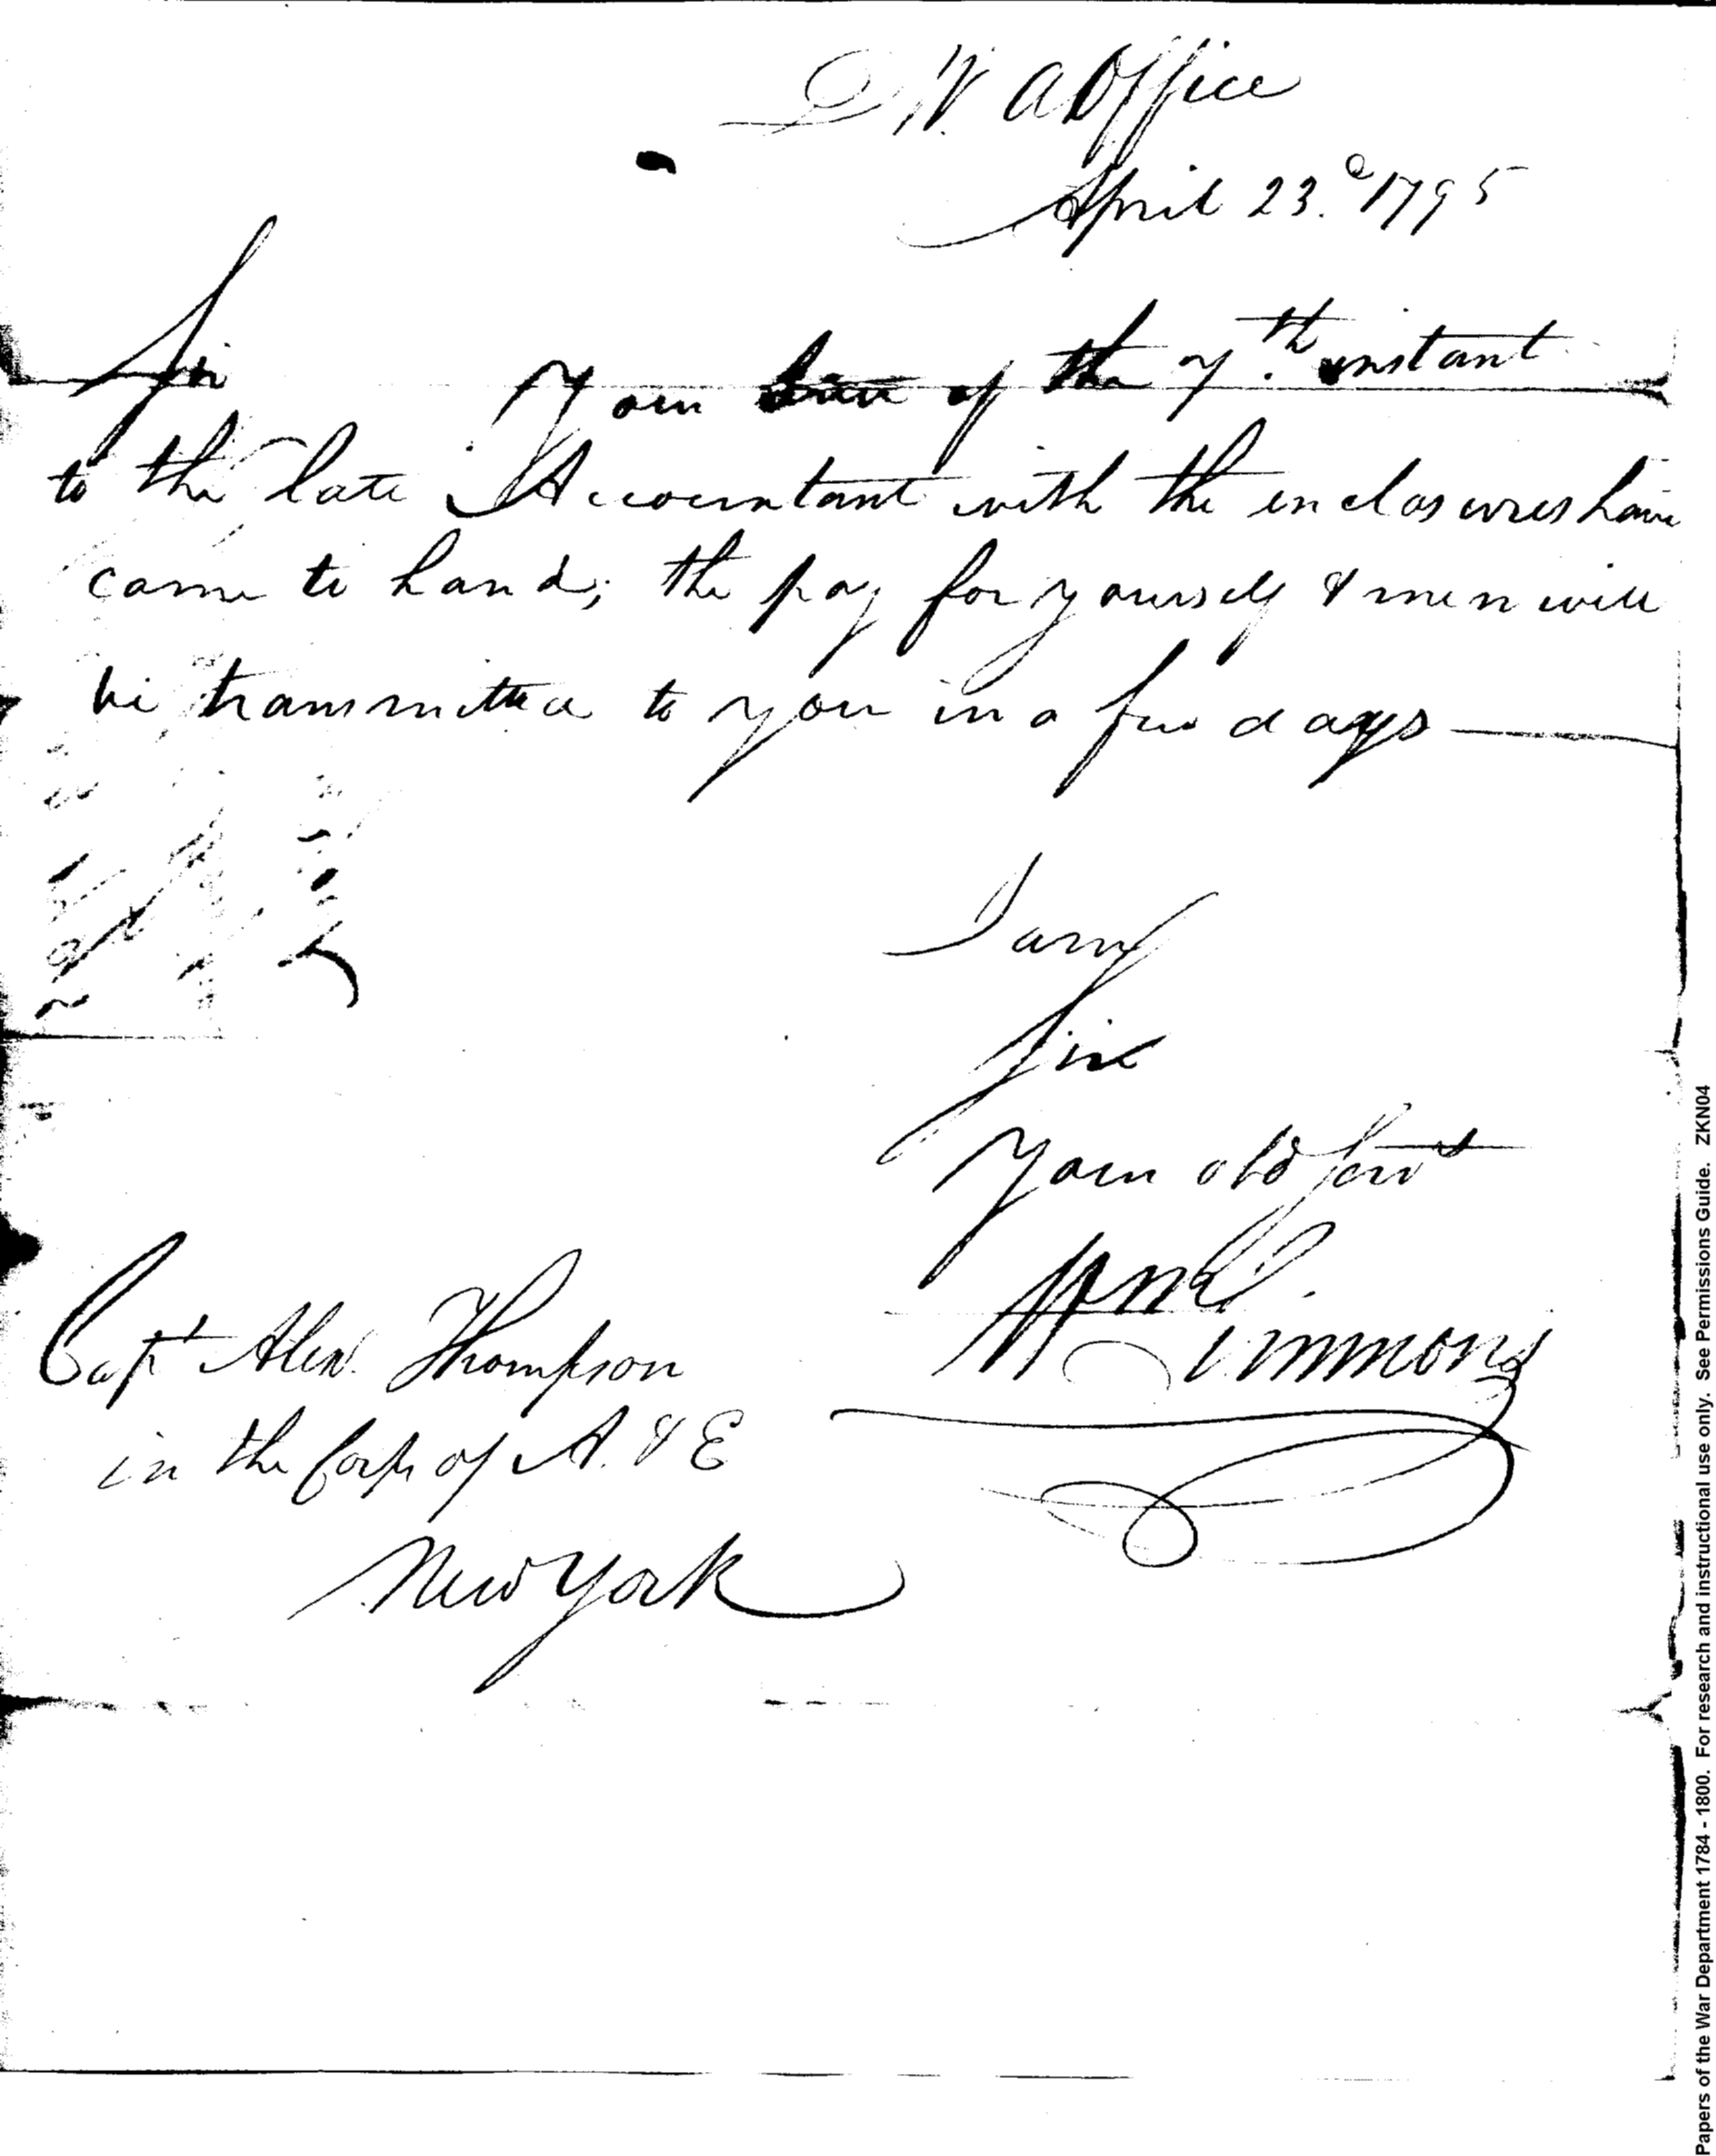 D W A Office
April 23.d 1795
Sir
Your favor of the 7.th instant
to the late Accountant with the enclosures have
came to hand; the pay for yourself & men will
be transmitted to you in a few days
I am
Sir
Your obd Servt
Wm Simmons
Capt Alexr. Thompson
in the Corps of A. & E
New York
Papers of the War Department 1784 - 1800. For research and instructional use only. See Permissions Guide. ZKN04